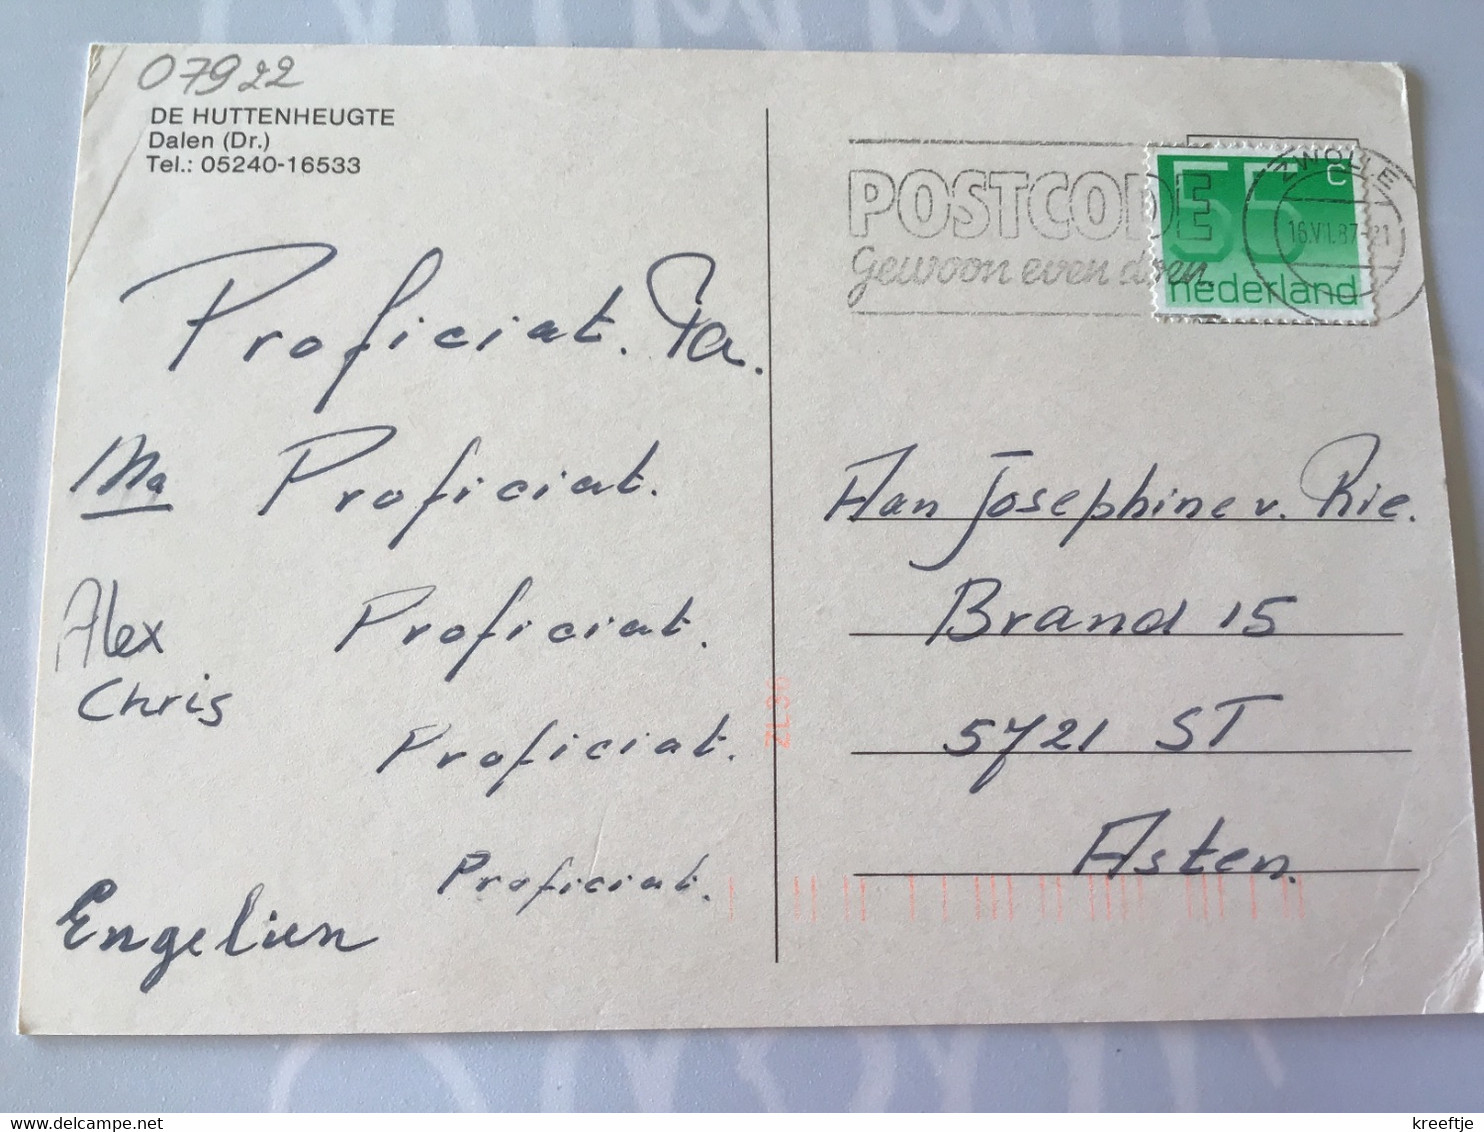 07922
DE HUTTENHEUGTE
Dalen (Dr.)
Tel.: 05240-16533
Proficiat. Pa.
Ma Proficiat.
Alex Proficiat.
Chris
Proficiat.
Proficiat.
Engelien
POSTCODE
Gewoon even doen.
55 c
nederland
ZWOLLE
16.VII.87-21
Aan Josephine v. Rie.
Brand 15
5721 ST
Asten.
ZL36
kreeftje